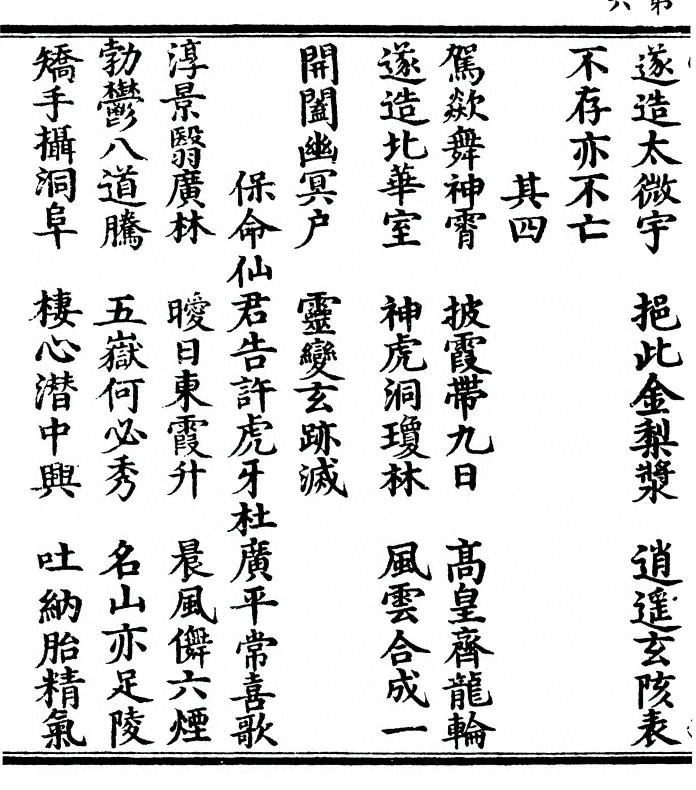 遂造太微宇　挹此金梨漿　逍遥玄陔表
不存亦不亡
其四
駕欻舞神霄　披霞帶九日　髙皇齊龍輪
遂造北華室　神虎洞瓊林　風雲合成一
開闔幽冥户　靈變玄跡滅
保命仙君告許虎牙杜廣平常喜歌
淳景翳廣林　曖日東霞升　晨風儛六煙
勃鬱八道騰　五嶽何必秀　名山亦足陵
矯手攝洞阜　棲心潛中興　吐納胎精氣